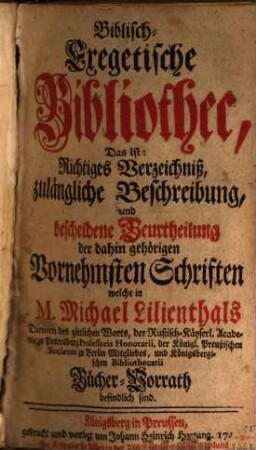 Biblisch-
Exegetische
Bibliothec,
Das ist:
Richtiges Verzeichniß,
zulängliche Beschreibung,
und
bescheidene Beurtheilung
der dahin gehörigen
Vornehmsten Schriften
welche in
M. Michael Lilienthals
Dieners des göttlichen Worts, der Rußisch-Käyserl. Acade-
Professoris Honorarii, der Königl. Preußischen
Societät zu Berlin Mitgliedes, und Königsbergi-
schen Bibliothecarii
Bücher-Vorrath
befindlich sind.
Königsberg in Preussen,
gedruckt und verlegt von Johann Heinrich Hartung. 17